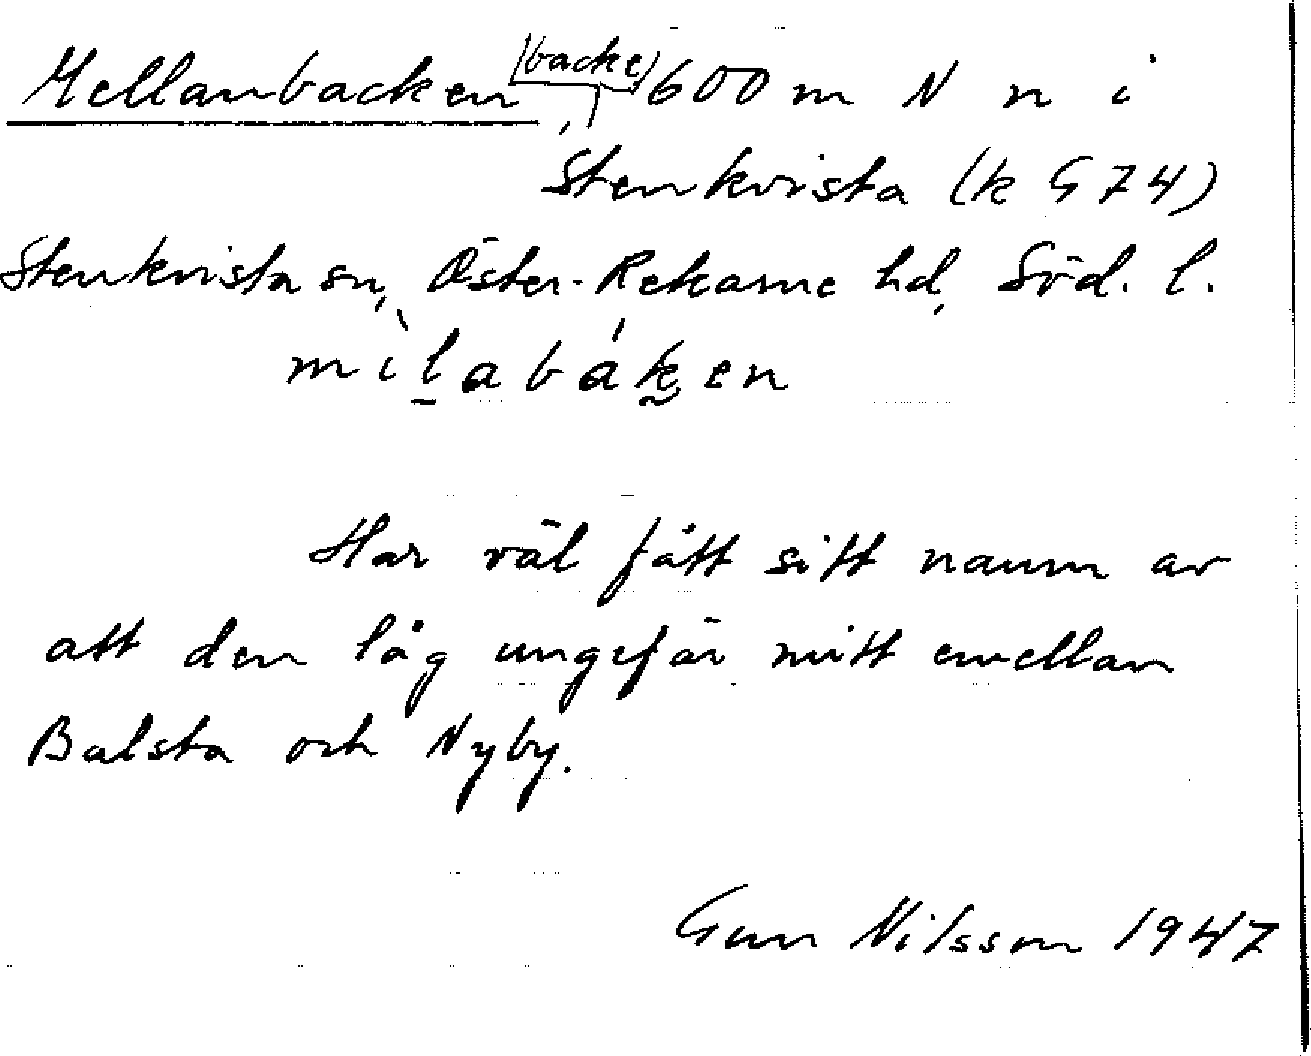 Mellanbacken (backe), 600 m N n i
Stenkvista (k G 74)
Stenkvista sn, Öster-Rekarne hd, Söd. l.
mìlabáken
Har väl fått sitt namn av
att den låg ungefär mitt emellan
Balsta och Nyby.
Gun Nilsson 1947